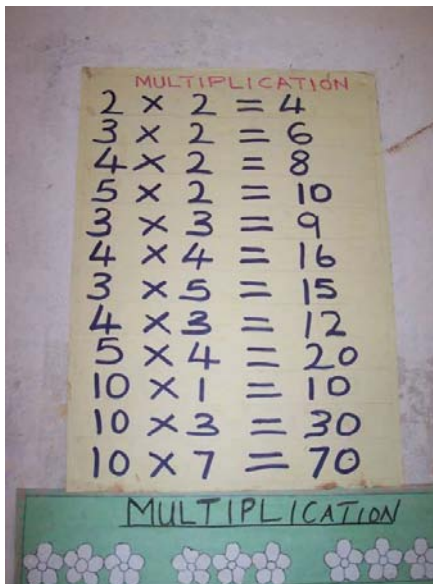 MULTIPLICATION
2 × 2 = 4
3 × 2 = 6
4 × 2 = 8
5 × 2 = 10
3 × 3 = 9
4 × 4 = 16
3 × 5 = 15
4 × 3 = 12
5 × 4 = 20
10 × 1 = 10
10 × 3 = 30
10 × 7 = 70
MULTIPLICATION